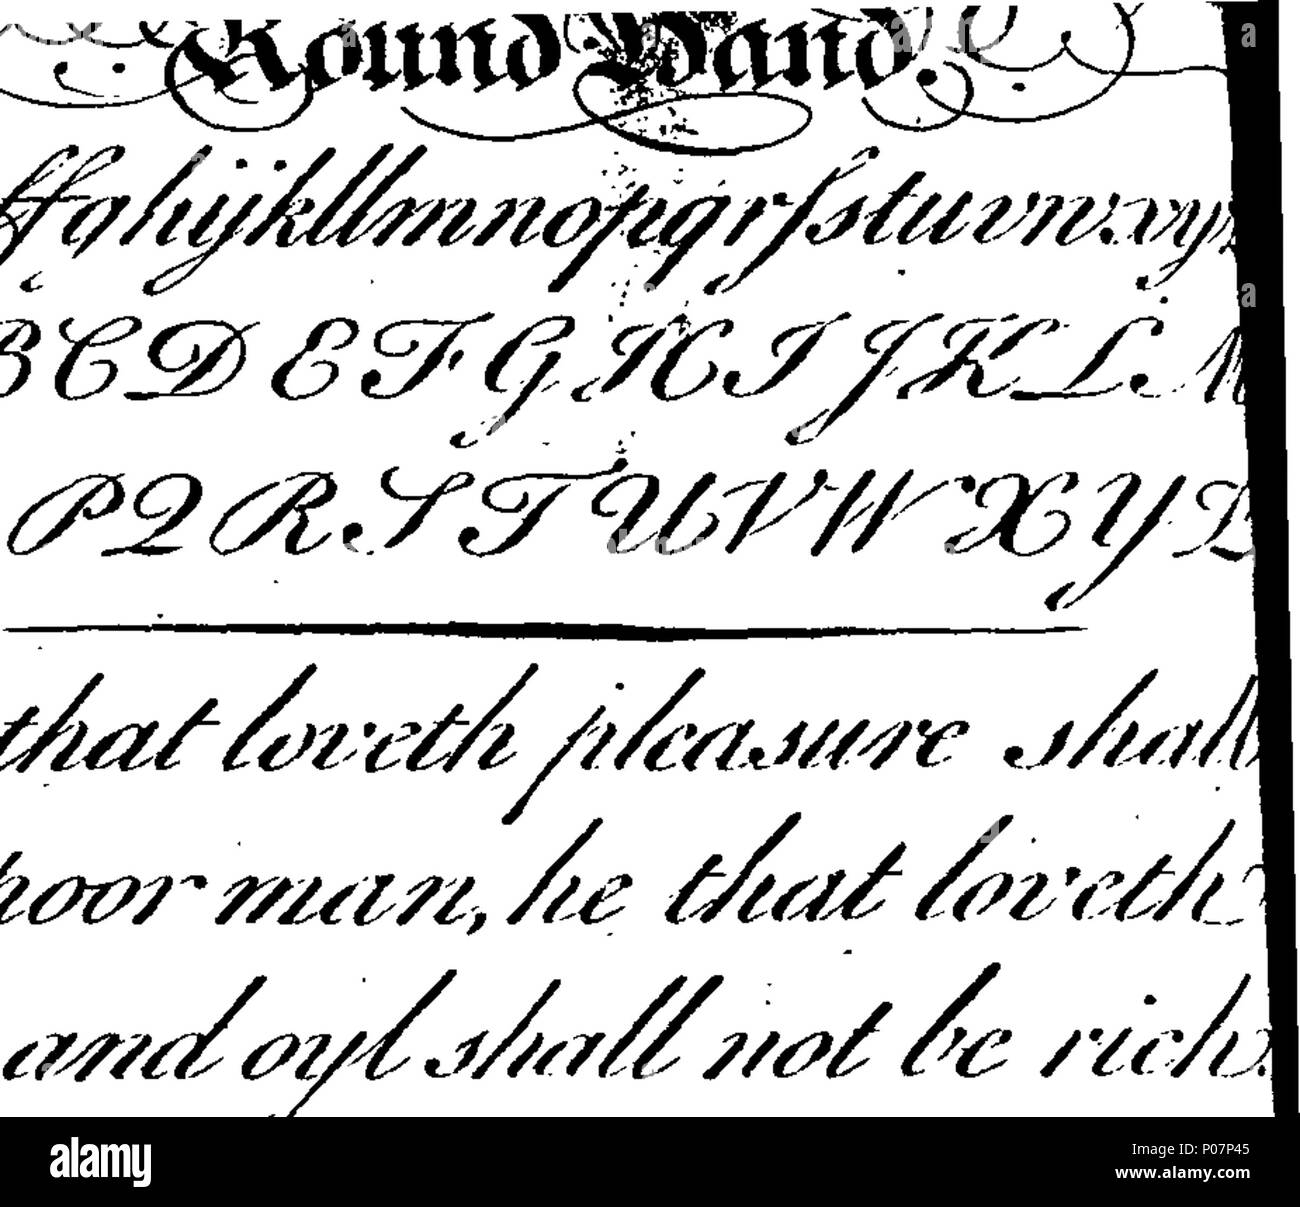 Round Hand.
ffghijkllmnopqrſstuvwxyz
BCDEFGHIJKLM
PQRSTUVWXYZ
that loveth pleasure shall
poor man, he that loveth
and oyl shall not be rich.
alamy
Image ID: P07P45
www.alamy.com